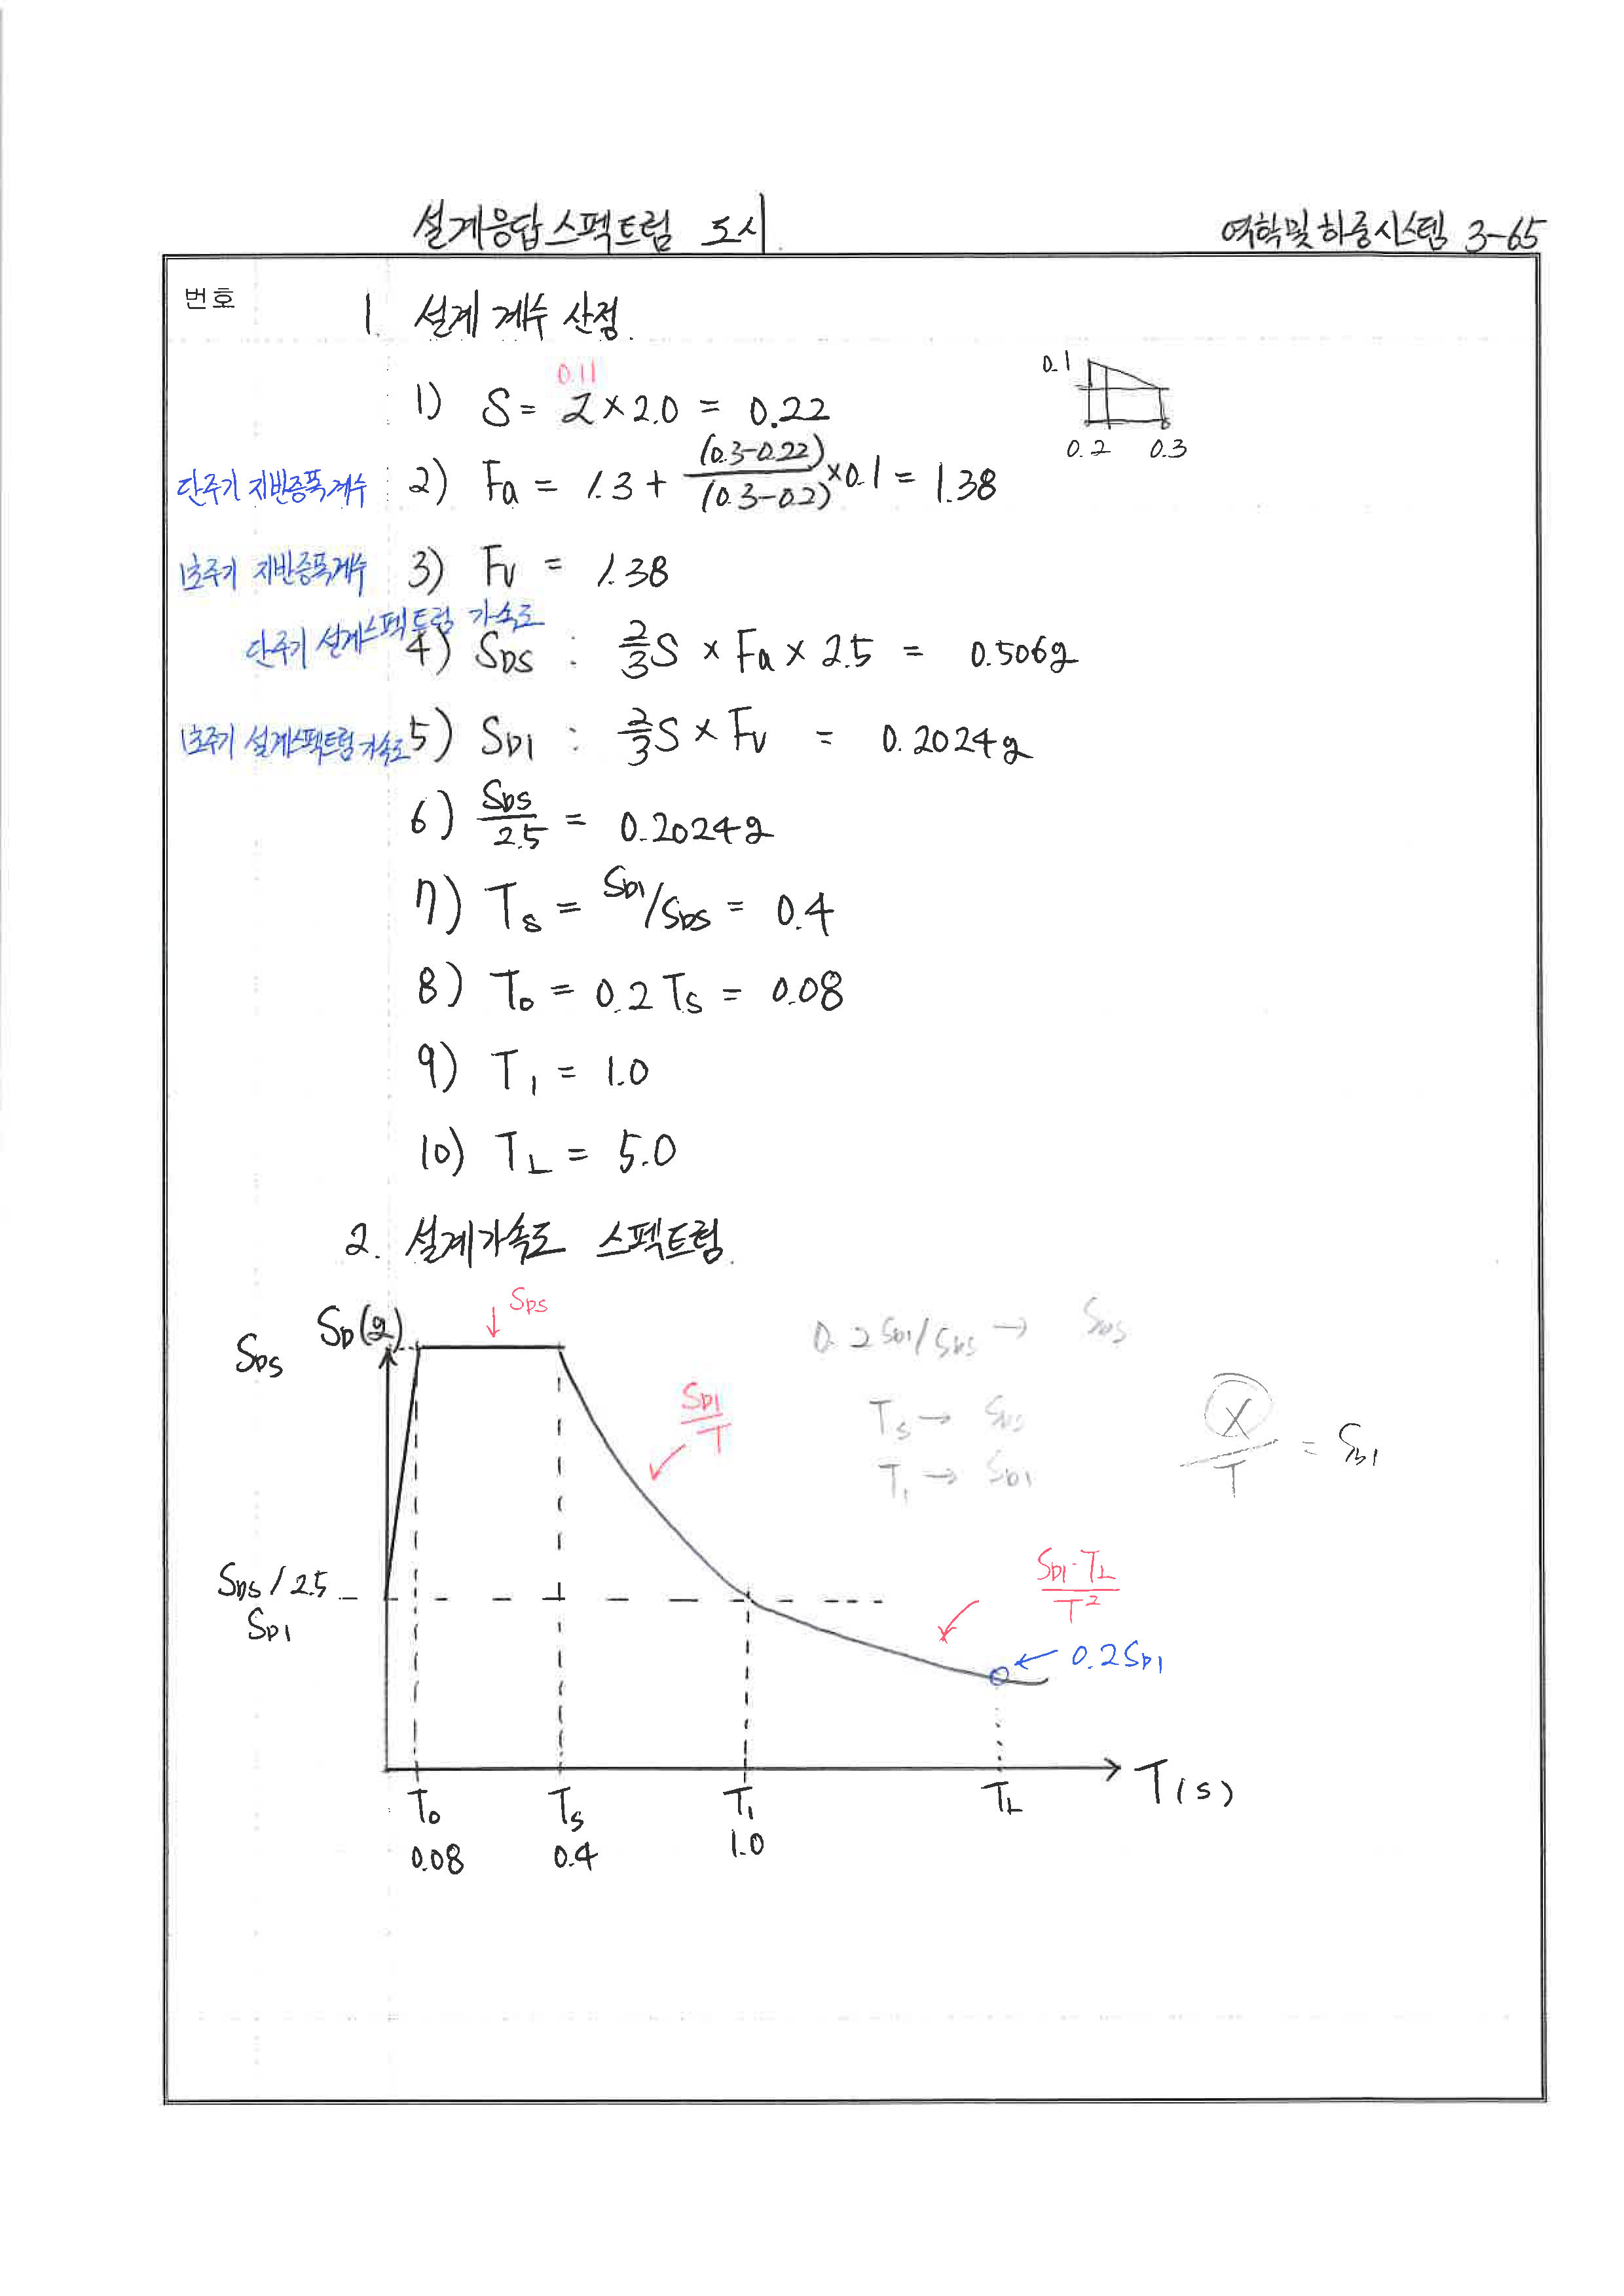 설계응답스펙트럼 도시
역학및하중시스템 3-65
번호
1. 설계 계수 산정.
0.11
1) S = Z × 2.0 = 0.22
0.1
0.2 0.3
단주기 지반증폭계수 2) Fa = 1.3 + (0.3-0.22)/(0.3-0.2) × 0.1 = 1.38
1초주기 지반증폭계수 3) Fv = 1.38
단주기 설계스펙트럼 가속도
4) SDS : 2/3 S × Fa × 2.5 = 0.506g
1초주기 설계스펙트럼 가속도 5) SD1 : 2/3 S × Fv = 0.2024g
6) SDS/2.5 = 0.2024g
7) Ts = SD1/SDS = 0.4
8) To = 0.2 Ts = 0.08
9) T1 = 1.0
10) TL = 5.0
2. 설계가속도 스펙트럼.
SDS
SD(g)
SDS
0.2 SD1/SDS → SDS
SD1/T
Ts → SDS
T1 → SD1
X/T = SD1
SDS/2.5
SD1
SD1·TL/T²
0.2SD1
To Ts T1 TL T(s)
0.08 0.4 1.0